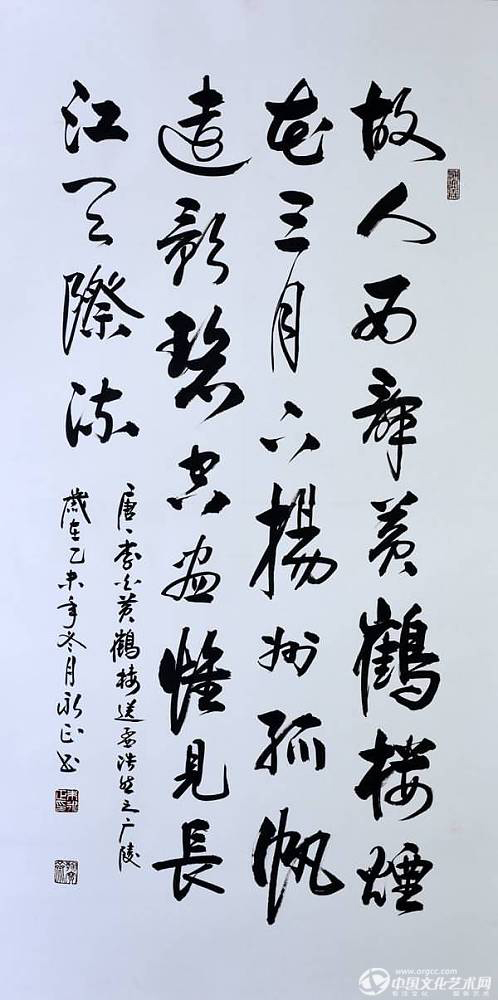 故人西辞黄鹤楼煙
花三月下揚州孤帆
遠影碧空盡惟見長
江天際流
唐李白黄鶴楼送孟浩然之广陵
歲在乙未年冬月永正书
www.orgcc.com
中国文化艺术网